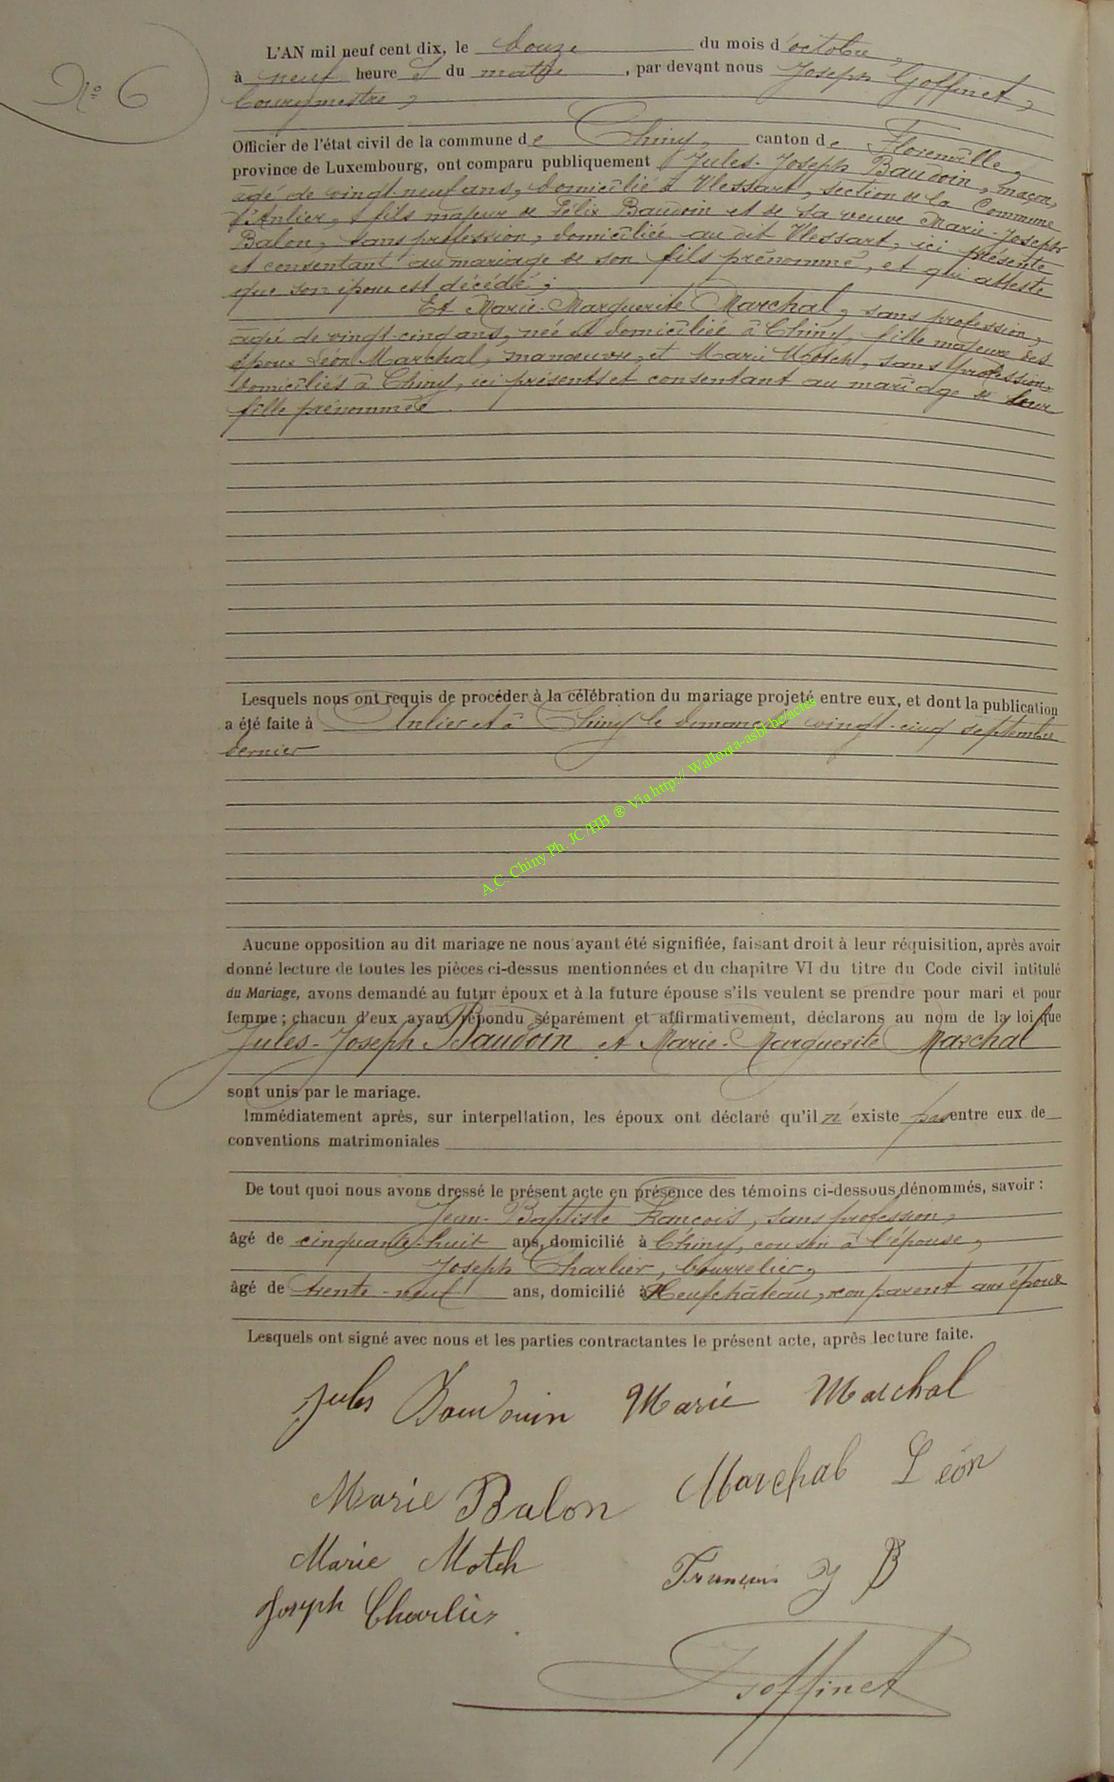 N° 6
L'AN mil neuf cent dix, le douze du mois d'octobre,
à neuf heures du matin, par devant nous Joseph Goffinet,
bourgmestre,
Officier de l'état civil de la commune de Chiny, canton de Florenville,
province de Luxembourg, ont comparu publiquement Jules-Joseph Baudoin, maçon,
âgé de vingt-neuf ans, domicilié à Vlessart, section de la Commune
d'Anlier, fils majeur de Félix Baudoin et de sa veuve Marie-Joseph
Balon, sans profession, domiciliée au dit Vlessart, ici présente
et consentant au mariage de son fils prénommé, et qui atteste
que son époux est décédé;
Et Marie-Marguerite Marchal, sans profession,
âgée de vingt-cinq ans, née et domiciliée à Chiny, fille majeure des
époux Léon Marchal, manœuvre, et Marie Mootch, sans profession,
domiciliés à Chiny, ici présents et consentant au mariage de leur
fille prénommée.
Lesquels nous ont requis de procéder à la célébration du mariage projeté entre eux, et dont la publication
a été faite à Anlier et à Chiny le dimanche vingt-cinq septembre
dernier
A.C. Chiny Ph. JC/HB ® Via http:// Wallonia-asbl-be/actes
Aucune opposition au dit mariage ne nous ayant été signifiée, faisant droit à leur réquisition, après avoir
donné lecture de toutes les pièces ci-dessus mentionnées et du chapitre VI du titre du Code civil intitulé
du Mariage, avons demandé au futur époux et à la future épouse s'ils veulent se prendre pour mari et pour
femme; chacun d'eux ayant répondu séparément et affirmativement, déclarons au nom de la loi que
Jules-Joseph Baudoin et Marie-Marguerite Marchal
sont unis par le mariage.
Immédiatement après, sur interpellation, les époux ont déclaré qu'il n'existe pas entre eux de
conventions matrimoniales
De tout quoi nous avons dressé le présent acte en présence des témoins ci-dessous dénommés, savoir:
Jean-Baptiste François, sans profession,
âgé de cinquante-huit ans, domicilié à Chiny, cousin à l'épouse,
Joseph Charlier, bourrelier,
âgé de trente-neuf ans, domicilié à Neufchâteau, non parent aux époux
Lesquels ont signé avec nous et les parties contractantes le présent acte, après lecture faite.
Jules Baudouin Marie Marchal
Marie Balon Marchal Léon
Marie Motch François J B
Joseph Charlier
Goffinet